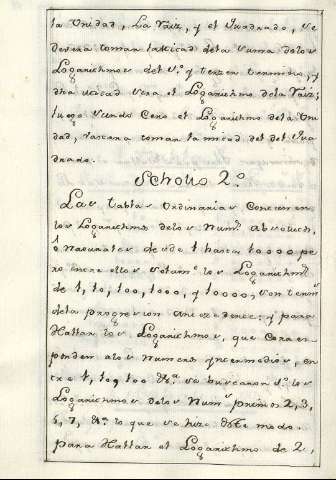 la Unidad, La Raiz, y el Quadrado, se
devera tomar la Mitad de la suma de los
Logarithmos del 1.º y tercer termino, y
dha mitad sera el Logarithmo de la Raiz;
luego siendo Cero el Logarithmo de la Uni
dad, vastara tomar la mitad del del Qua
drado.
Scholio 2.º
Las tablas Ordinarias Contienen
los Logarithmos de los Num.s absolutos,
o Naturales desde 1 hasta 10000 pe
ro entre ellos solam.te los Logarithm.s
de 1, 10, 100, 1000, y 10000, son term.s
de la progresion antecedente: y para
Hallar los Logarithmos, que Corres
ponden a los Numeros yntermedios, en
tre 1, 10, 100 &.a se buscaron 1.º los
Logarithmos de los Num.s primos 2, 3,
5, 7, &.a lo que se hizo deste modo.
Para Hallar el Logarithmo de 2,